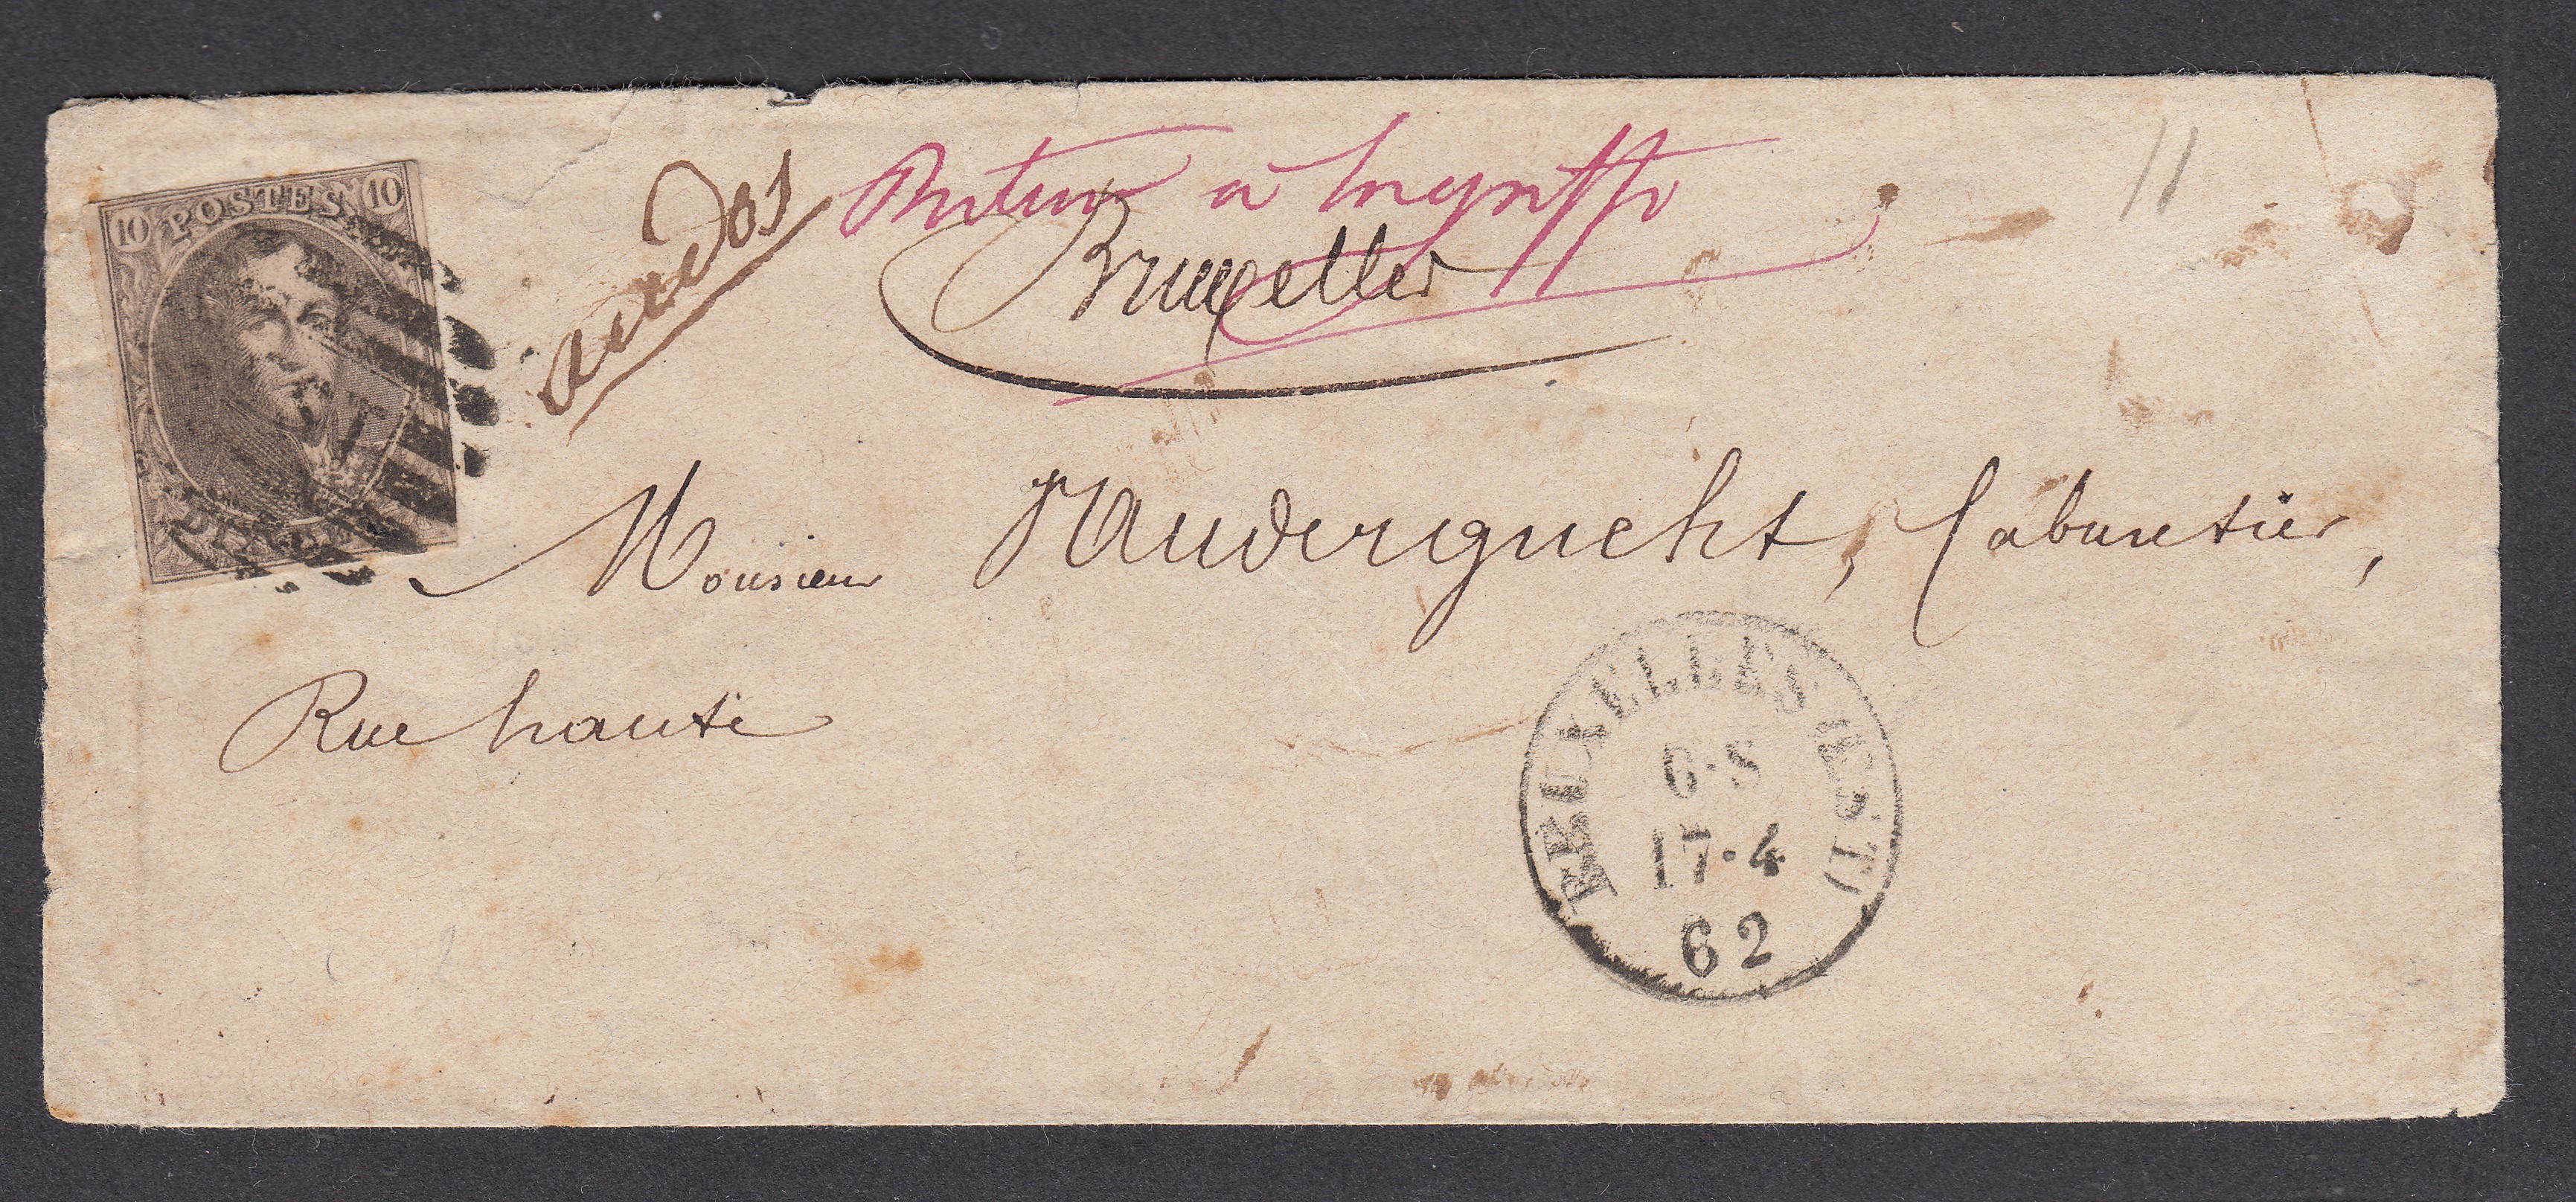 10 POSTES 10
au Dos
Retour à la griffe
Bruxelles
Monsieur Vanderguecht, Cabaretier,
Rue haute
BRUXELLES (EST)
6·S
17·4
62